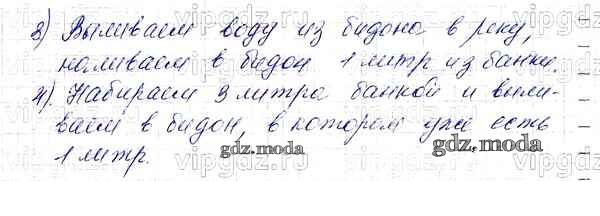 3) Выливаем воду из бидона в реку,
наливаем в бидон 1 литр из банки.
4). Набираем 3 литра банкой и выли-
ваем в бидон, в котором уже есть
1 литр.
gdz.moda
gdz.moda